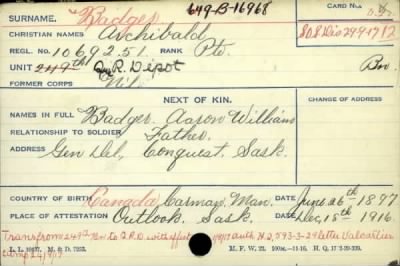 649-B-16968
CARD NO.
SURNAME. Badger
CHRISTIAN NAMES Archibald
S.O.S. Dis 29-9-17
REGL. NO. 1069251. RANK Pte.
UNIT 249th Q.R. Depot
FORMER CORPS Nil.
NEXT OF KIN.
CHANGE OF ADDRESS
NAMES IN FULL Badger. Aaron William
RELATIONSHIP TO SOLDIER Father.
ADDRESS Gen Del, Conquest. Sask.
COUNTRY OF BIRTH Canada Carman, Man. DATE June 26th 1897
PLACE OF ATTESTATION Outlook. Sask. DATE Dec, 18th 1916.
Trans from 249th Bn to Q.R.D. with effect auth H.Q. 593-3-29 letter Valcartier
Camp
M. F. W. 22.